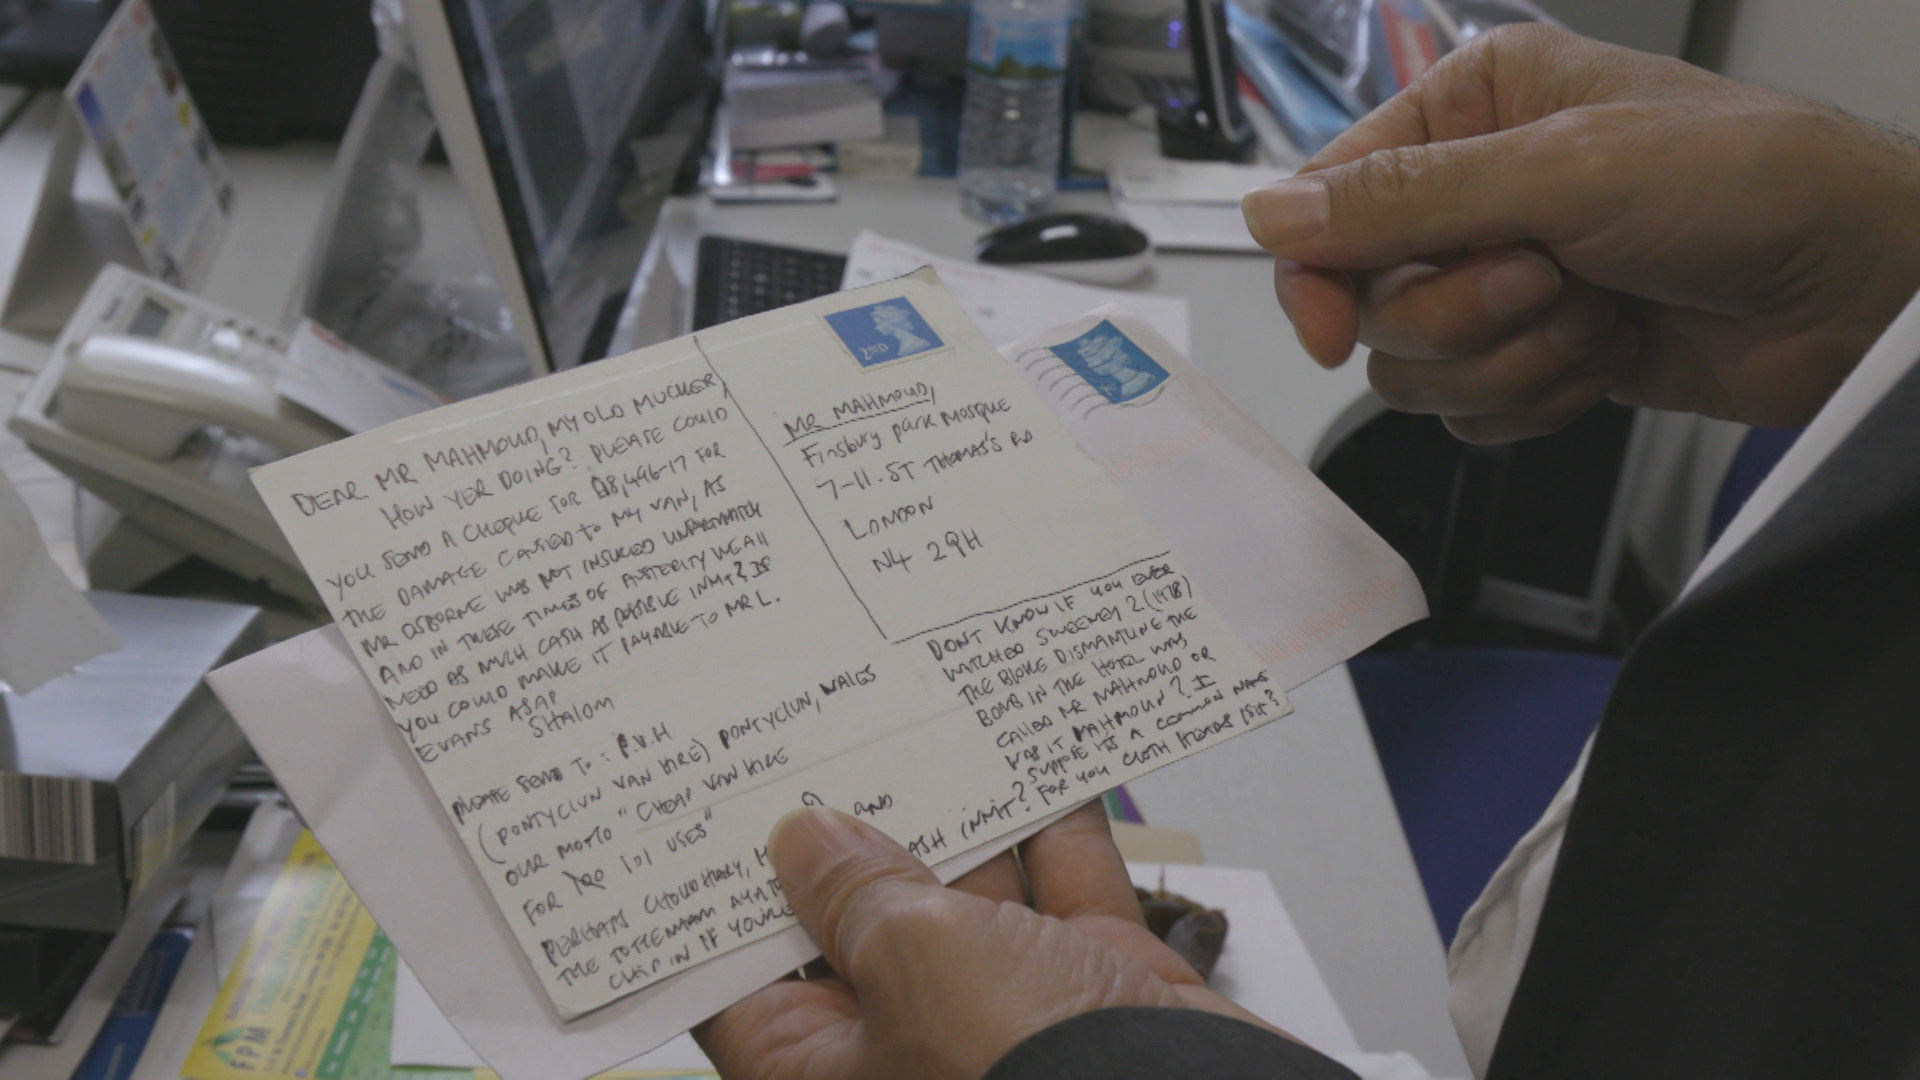 DEAR MR MAHMOUD, MY OLD MUCKER,
HOW YER DOING? PLEASE COULD
YOU SEND A CHEQUE FOR £18,496-17 FOR
THE DAMAGE CAUSED to MY VAN, AS
MR OSBORNE WAS NOT INSURED UNFORTUNATELY
AND IN THESE TIMES OF AUSTERITY WE ALL
NEED AS MUCH CASH AS POSSIBLE INNIT? IF
YOU COULD MAKE IT PAYABLE TO MR L.
EVANS ASAP
SHALOM
PLEASE SEND TO: P.V.H
(PONTYCLUN VAN HIRE) PONTYCLUN, WALES
OUR MOTTO "CHEAP VAN HIRE
FOR 101 USES"
PERHAPS CHOUDHARY, H AND
THE TOTTENHAM AYATO ASH INNIT?
CHIP IN IF YOU'RE
2ND
MR MAHMOUD,
Finsbury park Mosque
7-11-ST THOMAS'S RD
LONDON
N4 2QH
DON'T KNOW IF YOU EVER
WATCHED SWEENEY 2 (1978)
THE BLOKE DISMANTLING THE
BOMB IN THE HOTEL WAS
CALLED MR MAHMOUD OR
WAS IT MAHMOUN? I
SUPPOSE IT'S A COMMON NAME
FOR YOU CLOTH HEADS ISIT?
FPM